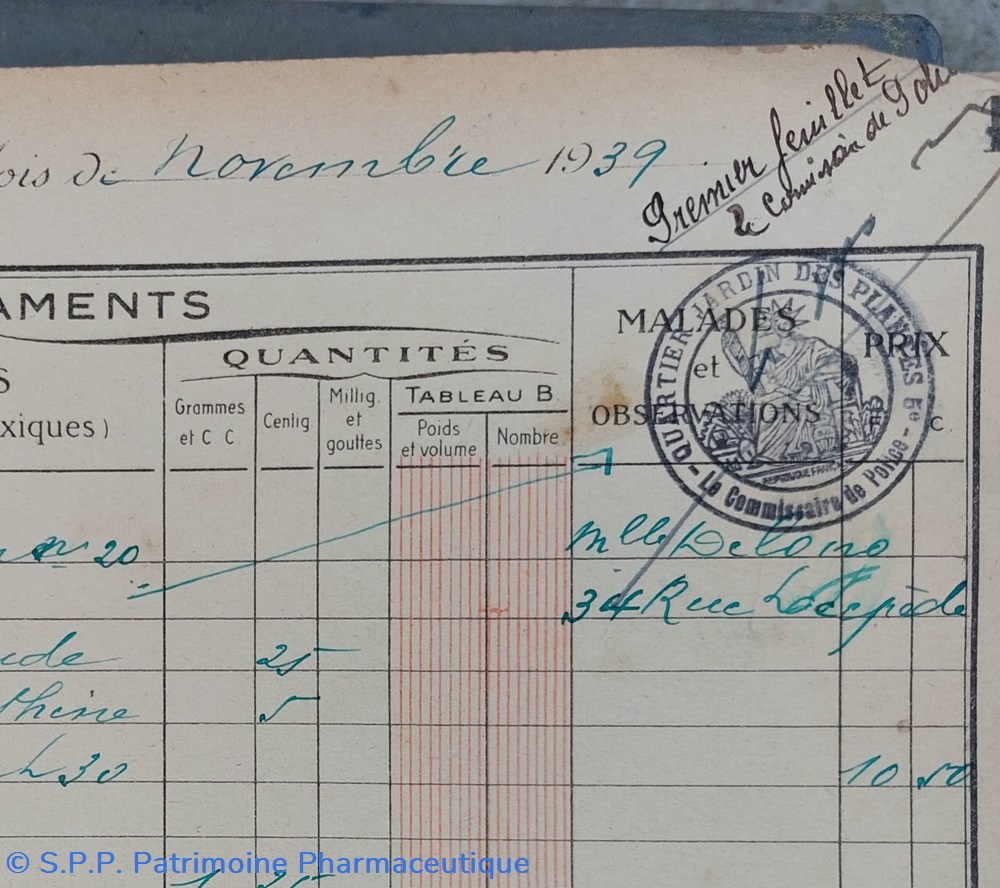 Premier feuillet
Le Comissaire de Pol
ois de novembre 1939
AMENTS
MALADES
et
OBSERVATIONS
PRIX
F C
QUARTIER JARDIN DES PLANTES 5e - Le Commissaire de Police -
REPUBLIQUE FRANCAISE
QUANTITÉS
S
xiques)
Grammes
et C C.
Centig
Millig.
et
gouttes
TABLEAU B
Poids
et volume
Nombre
20
Mlle
34 Rue Lacépède
25
5
30
10 50
1 25
© S.P.P. Patrimoine Pharmaceutique